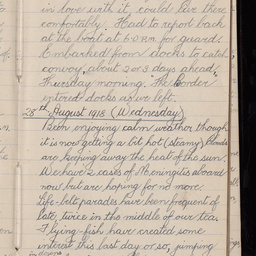 in love with it, could live there
comfortably. Had to report back
at the boat at 6 P.M. for guard.
Embarked from docks to catch
convoy, about 2 or 3 days ahead,
Thursday morning. "The Border
entered docks as we left.
28th August 1918 (Wednesday)
Been enjoying calm weather though
it is now getting a bit hot (steamy) Clouds
are keeping away the heat of the sun.
We have 2 cases of Meningitis aboard
now but are hoping for no more.
Life-belt parades have been frequent of
late, twice in the middle of our tea.
Flying-fish have created some
interest this last day or so, jumping